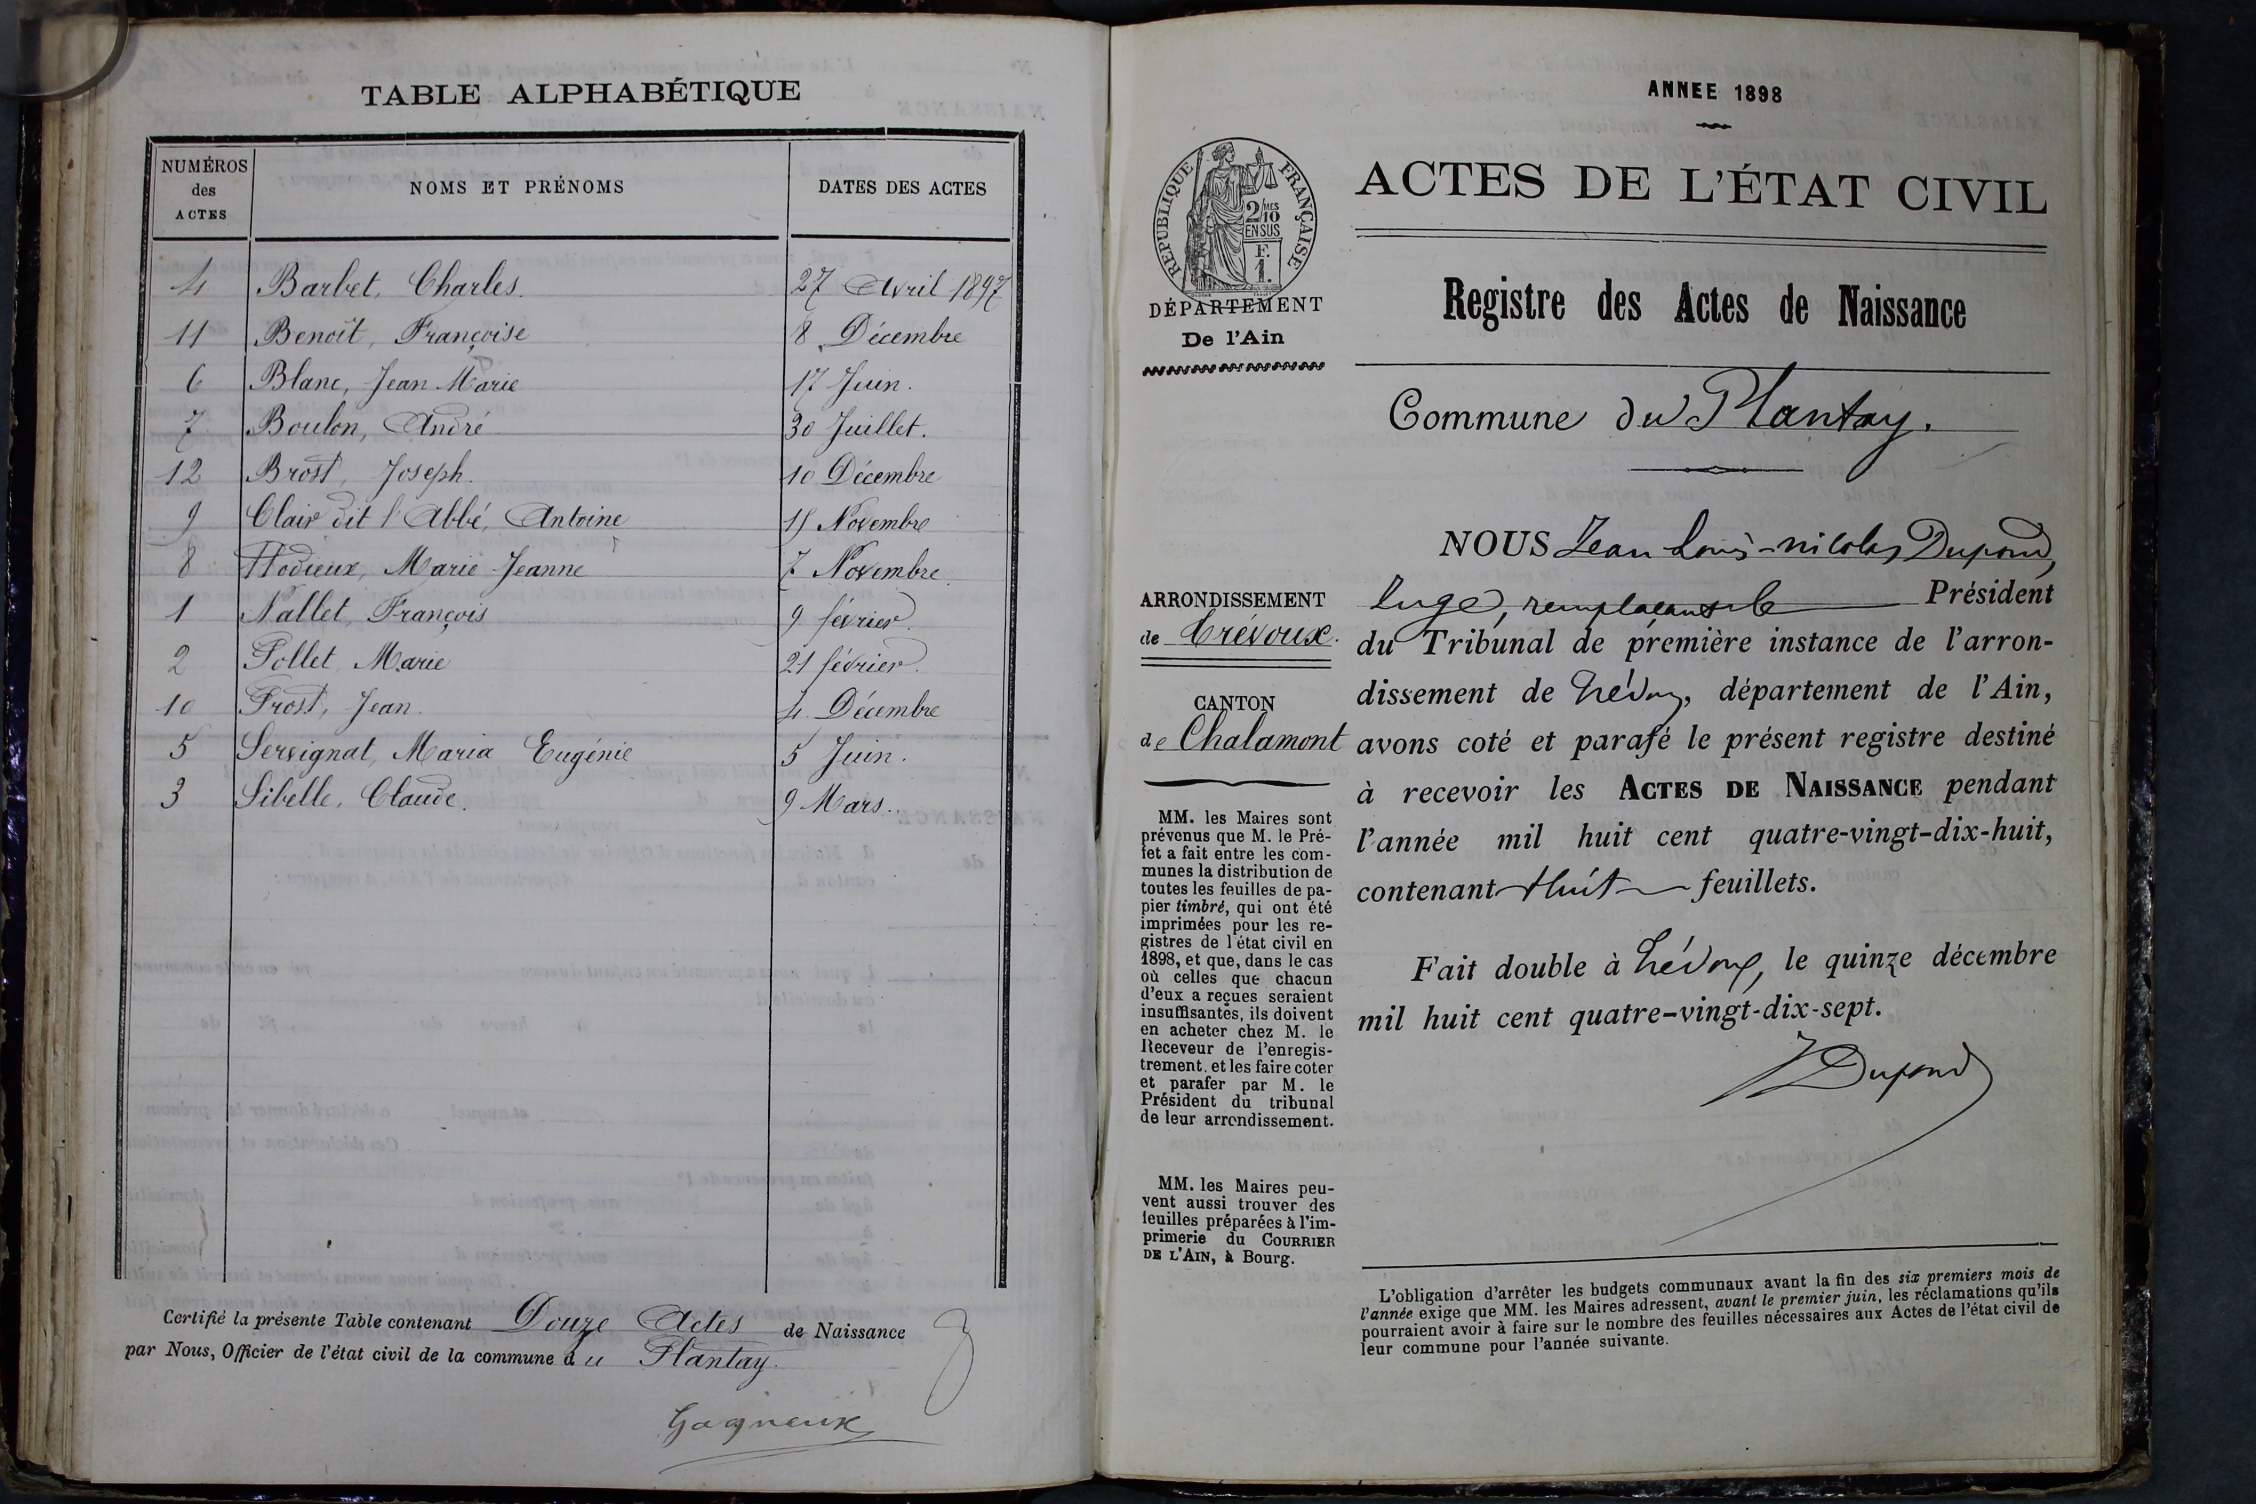 TABLE ALPHABÉTIQUE
NUMÉROS des ACTES NOMS ET PRÉNOMS DATES DES ACTES
4 Barbet, Charles. 27 Avril 1897
11 Benoît, Françoise 8 Décembre
6 Blanc, Jean Marie 17 Juin.
7 Boulon, André 30 Juillet.
12 Brost, Joseph. 10 Décembre
9 Clair dit l'Abbé, Antoine Novembre
8 Hodieux, Marie-Jeanne 7 Novembre.
1 Nallet, François 9 février.
2 Pollet Marie 21 février.
10 Prost, Jean. 4 Décembre
5 Servignat, Maria Eugénie 5 Juin.
3 Sibelle, Claude. 9 Mars.
Certifié la présente Table contenant Douze Actes de Naissance
par Nous, Officier de l'état civil de la commune du Plantay.
Gagneux
ANNEE 1898
RÉPUBLIQUE FRANÇAISE
2/10 MES
EN SUS
F.
1.
DÉPARTEMENT
De l'Ain
ACTES DE L'ÉTAT CIVIL
Registre des Actes de Naissance
Commune du Plantay.
ARRONDISSEMENT
de Trévoux.
CANTON
de Chalamont
MM. les Maires sont
prévenus que M. le Pré-
fet a fait entre les com-
munes la distribution de
toutes les feuilles de pa-
pier timbré, qui ont été
imprimées pour les re-
gistres de l'état civil en
1898, et que, dans le cas
où celles que chacun
d'eux a reçues seraient
insuffisantes, ils doivent
en acheter chez M. le
Receveur de l'enregis-
trement, et les faire coter
et parafer par M. le
Président du tribunal
de leur arrondissement.
MM. les Maires peu-
vent aussi trouver des
feuilles préparées à l'im-
primerie du COURRIER
DE L'AIN, à Bourg.
NOUS Jean Louis-Nicolas Dupond,
Juge, remplaçant le Président
du Tribunal de première instance de l'arron-
dissement de Trévoux, département de l'Ain,
avons coté et parafé le présent registre destiné
à recevoir les ACTES DE NAISSANCE pendant
l'année mil huit cent quatre-vingt-dix-huit,
contenant Huit feuillets.
Fait double à Trévoux, le quinze décembre
mil huit cent quatre-vingt-dix-sept.
Dupond
L'obligation d'arrêter les budgets communaux avant la fin des six premiers mois de
l'année exige que MM. les Maires adressent, avant le premier juin, les réclamations qu'ils
pourraient avoir à faire sur le nombre des feuilles nécessaires aux Actes de l'état civil de
leur commune pour l'année suivante.